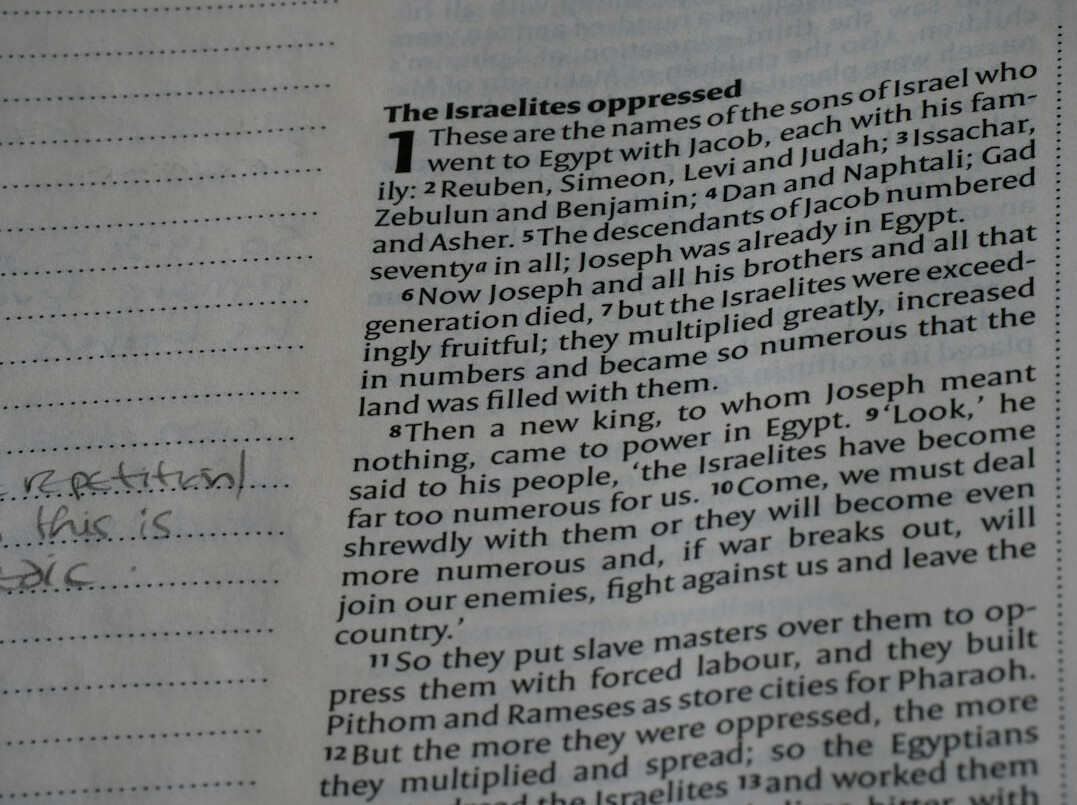 The Israelites oppressed
1 These are the names of the sons of Israel who
went to Egypt with Jacob, each with his fam-
ily: 2 Reuben, Simeon, Levi and Judah; 3 Issachar,
Zebulun and Benjamin; 4 Dan and Naphtali; Gad
and Asher. 5 The descendants of Jacob numbered
seventya in all; Joseph was already in Egypt.
6 Now Joseph and all his brothers and all that
generation died, 7 but the Israelites were exceed-
ingly fruitful; they multiplied greatly, increased
in numbers and became so numerous that the
land was filled with them.
8 Then a new king, to whom Joseph meant
nothing, came to power in Egypt. 9 ‘Look,’ he
said to his people, ‘the Israelites have become
far too numerous for us. 10 Come, we must deal
shrewdly with them or they will become even
more numerous and, if war breaks out, will
join our enemies, fight against us and leave the
country.’
11 So they put slave masters over them to op-
press them with forced labour, and they built
Pithom and Rameses as store cities for Pharaoh.
12 But the more they were oppressed, the more
they multiplied and spread; so the Egyptians
the Israelites 13 and worked them
with
this is